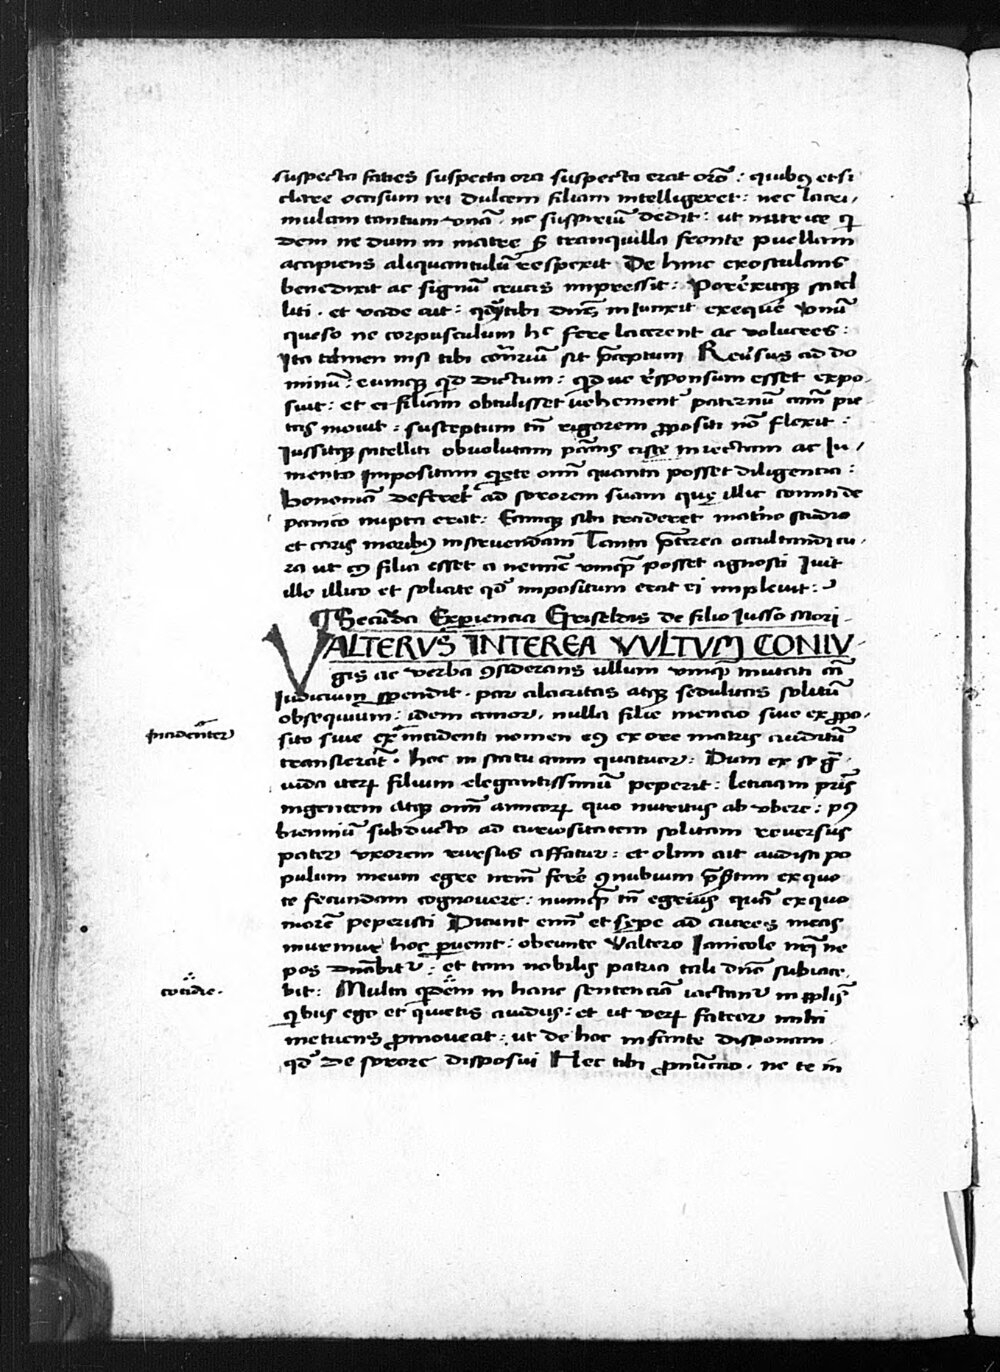 suspecta facies suspecta ora suspecta erat oro᷒ : quibꝰ etsi
clare occisum iri dulcem filiam intelligeret : nec lacri,
mulam tantum vnā . nc̄ suspiriū dedit : ut nutrice qͥ
dem ne dum in matre sꝫ tranquilla fronte puellam
accipiens aliquantulū respexit De hinc exosculans
benedixit ac signū crucis impressit : Porrexitqꝫ satel
liti . et vade ait : tibi dn̄s iniunxit exequere Vnū
queso ne corpusculum hͦ fere lacerent ac volucres :
Ita tamen nisi tibi cōtrariū sit p̄ceptum Reūsus ad do
minū : eumqꝫ qͥd dictum : qͥd ue r̄sponsum esset expo,
suit : et ei filiam obtulisset vehement᷑ paternū animū pie
tas mouit : susceptum tn̄ rigorem ꝓpositi nō flexit :
Iussitqꝫ satelliti obuolutam pānis ciste iniectam ac Iu,
mento impositam quiete omī quanta posset diligencia :
bononiā deferret ad sororem suam quę illic comiti de
panico nupta erat : Eamqꝫ sibi traderet mat᷑no studio
et caris moribꝰ instruendam Tanta p̄terea occultandi cu,
ra ut cꝰ filia esset a nemīe vmqꝫ posset agnosti Iuit
ille illico et solicite qͦd impositum erat ei impleuit :
¶ Secūda Experiencia Griseldis de filio Iusso Mori .
VALTERVS INTEREA VVLTVM CONIV
gis ac verba ꝯsiderans ullum vmqꝫ mutati aī
Iudicium ꝓpendit . par alacritas atqꝫ sedulitas solitū
obsequium : idem amor . nulla filie mencio siue ex ꝓpo,
sito siue ex incidenti nomen eꝰ ex ore matris auditū
Incidenter
transierāt . hoc in statu anni quatuor : Dum ex se gͣ
uida iterꝫ filium elegantissimū peperit : leticiam pr̄is
ingentem atqꝫ omī amicorꝫ quo nutritus ab vbere : pꝰ
bienniū subducto ad curiositatem solitam reuersus
pater vxorem rursus affatur : et olim ait audisti po
populum meum egre nr̄m ferre ꝯnubium p̄sertim ex quo
te fecundam cognouere : numqꝫ tn̄ egrius quā ex quo
marem peperisti Dicunt enī et sępe ad aures meas
murmur hoc ꝑuenit : obeunte Valtero Ianicole nr̄i ne
pos dn̄abitur : et tam nobilis patria tali dn̄o subiace,
bit : Multa qͦtidem in hanc sentenciā iactant᷑ in pp̄lis
cotidie .
qͥbus ego et quietis auidus : et ut verꝫ fatear mihi
metuens ꝓmoueat : ut de hoc infante disponam .
qͦd de sorore disposui Hec tibi ꝓnūctio . ne te in